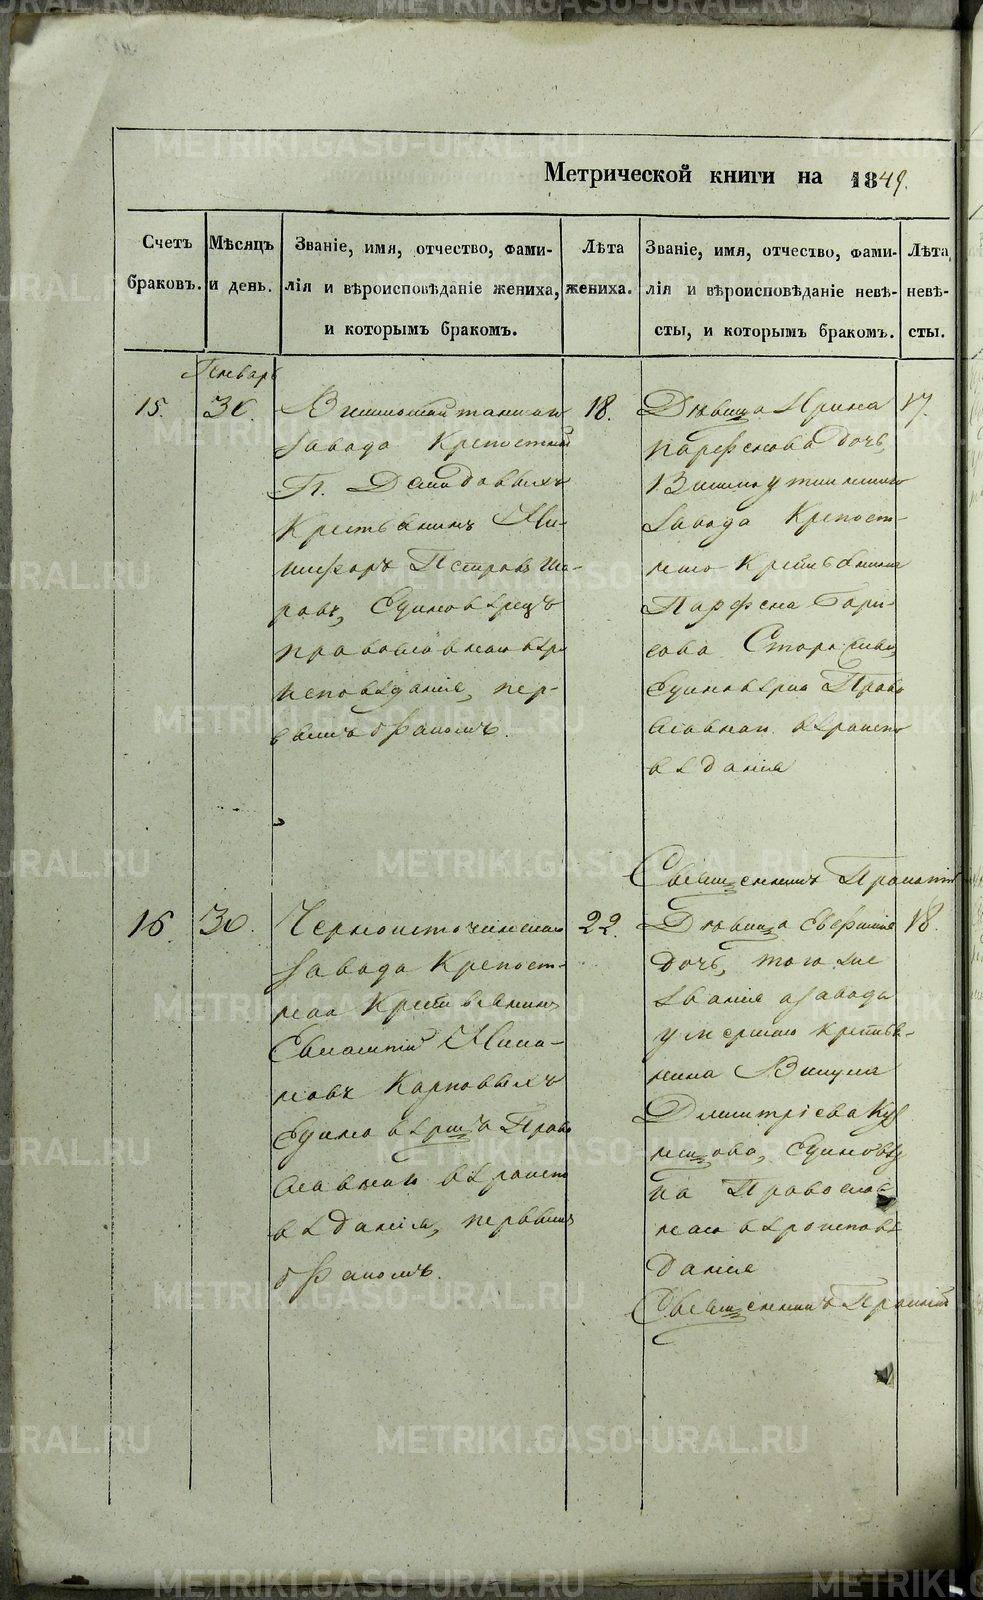 METRIKI.GASO-URAL.RU
Метрической книги на 1849.
Счетъ браковъ.
Мѣсяцъ и день.
Званіе, имя, отчество, фами-
лія и вѣроисповѣданіе жениха,
и которымъ бракомъ.
Лѣта жениха.
Званіе, имя, отчество, фами-
лія и вѣроисповѣданіе невѣ-
сты, и которымъ бракомъ.
Лѣта невѣ-
сты.
Январь
15.
30.
завода Крепостной
Г. Демидовыхъ
Крестьянинъ Ни-
кифоръ Петровъ
Единовѣрецъ
православнаго вѣро
исповѣданія, пер-
вымъ бракомъ.
18.
Дѣвица Ирина
Парфенова дочь,
завода Крепост-
наго Крестьянина
Парфена Бори-
сова
Единовѣрка Право
славнаго вѣроиспо
вѣданія
17.
Священникъ
16.
30.
Черноисточинскаго
завода Крепост-
ной Крестьянинъ
Евлампій
Карповыхъ
Единовѣрецъ Право
славнаго вѣроиспо
вѣданія, первымъ
бракомъ.
22.
Дѣвица
дочь, того же
званія и завода
умершаго крестья-
нина Викула
Дмитріева
Единовѣр
ка Православ
наго вѣроисповѣ
данія
18.
Священникъ